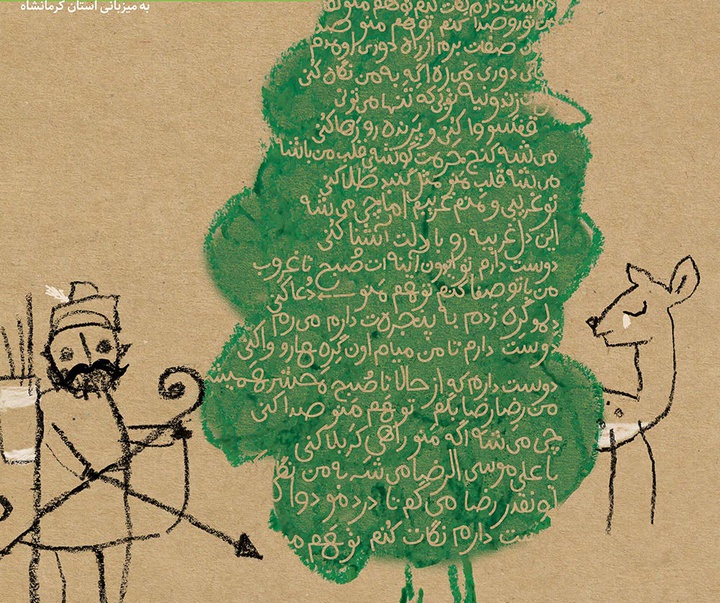 به میزبانی استان کرمانشاه
دوست دارم نگات کنم تو هم منو نگا
من تو رو صدا کنم تو هم منو صد
صفت برم از راه دوری اومدم
دوری نمی‌ره اگه به من نگاه کنی
زندونیه تویی که تنها می‌تونی
قفسو وا کنی و پرنده رو رها کنی
می‌شه کنج حرمت گوشه‌ی قلب من باشه
می‌شه قلب منو مثل گنبد طلا کنی
تو غریبی و منم غریبم اما چی می‌شه
این دل غریبه رو با دلت آشنا کنی
دوست دارم تو ایوون آینه ات صبح تا غروب
من با تو صفا کنم تو هم منو دعا کنی
دلمو گره زدم به پنجره‌ت دارم می‌رم
دوست دارم تا من میام اون گره‌ها رو وا کنی
دوست دارم که از حالا تا صبح محشر همیشه
من رضا رضا بگم تو هم منو صدا کنی
چی می‌شه اگه منو راهی کربلا کنی
یا علی موسی الرضا می‌شه به من نگا
اونقدر رضا می‌گم تا دردمو دوا
دوست دارم نگات کنم تو هم من